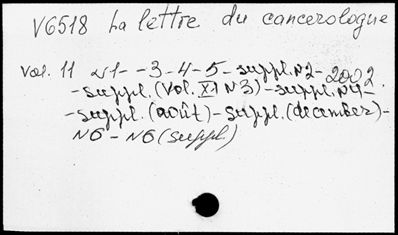 V6518 La lettre du cancerologue
Vol. 11 N1- -3-4-5-suppl. N2-2002
-suppl. (Vol. XI N3)-suppl. N4-
-suppl. (août)-suppl. (december)-
N6-N6 (suppl.)